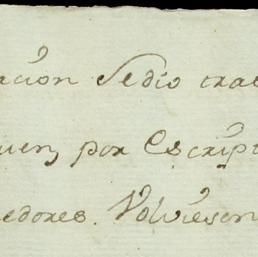 acion Sedio tras
uen, por Escript
edores. Volvieson